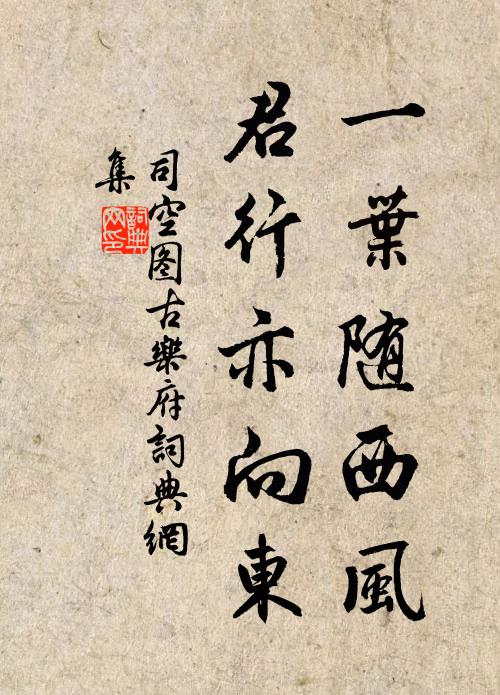 一葉随西風
君行亦向東
司空图古樂府詞典網
集
詞典
网印